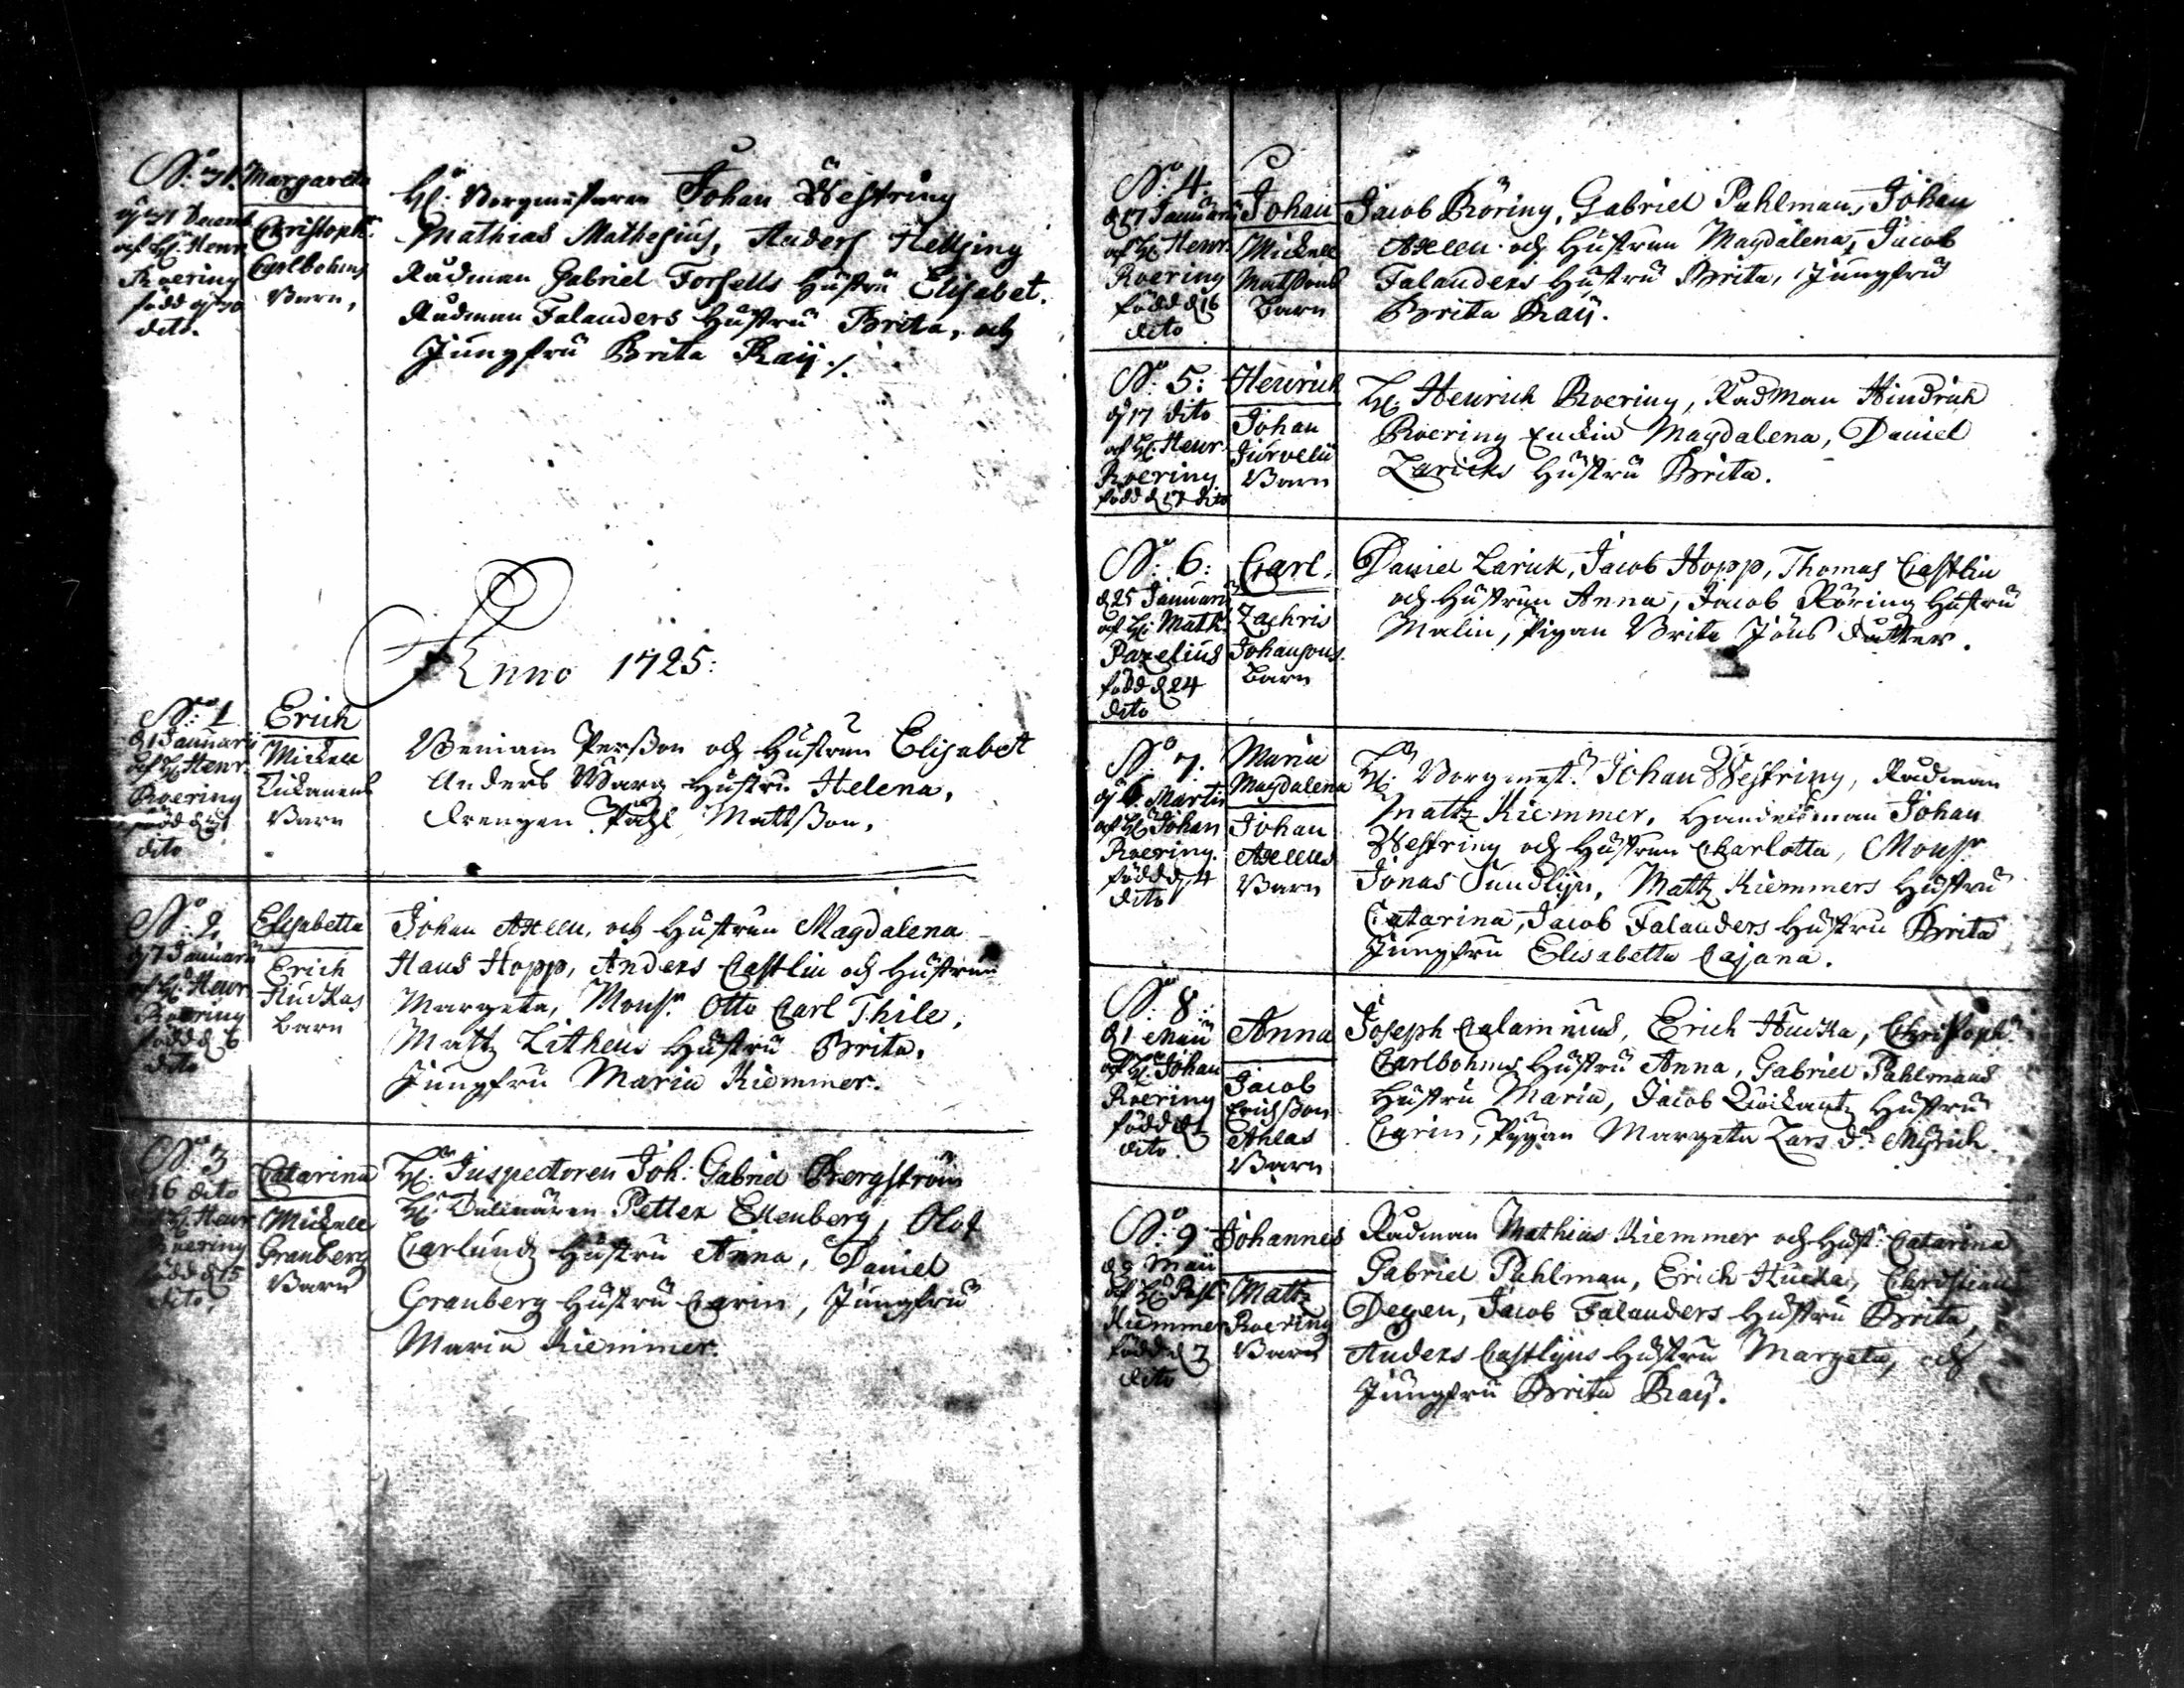 No: 31. Margareta
d 31 Decemb.
af H: Henr.
Roering
född d 30
dito.
Christoph:
Carlbohms
Barn,
H: Borgmästaren Johan Westring
Mathias Mathesius, Anders Hellsing
Rådman Gabriel Forsells Hustru Elisabet.
Rådman Falanders Hustru Brita, och
Jungfru Brita Raij ./.
Anno 1725:
No: 1
d 1 Januarii
af H: Henr.
Roering
född d 31
dito
Erich
Mickell
Barn
Beniam Persson och Hustrun Elisabet
Anders Warg Hustru Helena,
drengen Påhl Mattsson,
No: 2
d 7 Januarii
af H: Henr
Roering
född d 6
dito
Elisabetta
Erich
Huckas
Barn
Johan Axeen, och Hustrun Magdalena
Hans Hopp, Anders Castlin och Hustrun
Margeta, Monsr. Otto Carl Thile,
Mattz Litheus Hustru Brita,
Jungfru Maria Kiemmer.
No: 3
16 dito
af H: Henr
Roering
född d 15
dito,
Catarina
Mickell
Granberg
Barn
H: Inspectoren Joh: Gabriel Bergström
H: Petter Ekenberg, Olof
Carlundz Hustru Anna, Daniel
Granberg Hustru Carin, Jungfru
Maria Kiemmer.
No: 4.
d 17 Januarii
af H: Henr.
Roering
född d 16
dito
Johan
Mickell
Matssons
Barn
Jacob Röring, Gabriel Pahlman, Johan
Axeen och Hustrun Magdalena, Jacob
Falanders Hustru Brita, Jungfru
Brita Raij.
No: 5:
d 17 dito
af H: Henr.
Roering
född d 17 dito
Henrich
Johan
Jurvelii
Barn
H: Henrich Roering, RådMan Hindrich
Roering Enckia Magdalena, Daniel
Laricks Hustru Brita.
No: 6:
d 25 Januarii
af H: Math.
Pazelius
född d 24
dito
Carl.
Zachris
Johansons
Barn
Daniel Larick, Jacob Hopp, Thomas Castlin
och Hustrun Anna, Jacob Röring Hustru
Malin, Pigan Brita Jöns dutter.
No: 7.
d 6. Martii
af H: Johan
Roering.
född d 4
dito
Maria
Magdalena
Johan
Axeens
Barn
H: Borgmest. Johan Westring, Rådman
Mattz Kiemmer, Handelsman Johan
Westring och Hustrun Charlotta, Monsr
Jonas Sundlijn, Mattz Kiemmers Hustru
Catarina, Jacob Falanders Hustru Brita
Jungfru Elisabetta Cajana.
No: 8:
d 1 Maii
af H: Johan
Roering
född d 1
dito
Anna
Jacob
Erichsson
Ahlas
Barn
Joseph Calamnius, Erich Hucka, Christoph
Carlbohms Hustru Anna, Gabriel Pahlmans
Hustru Maria, Jacob Hustru
Carin, Pigan Margeta Lars dr
No: 9
d 9 Maii
af H: Past:
Kiemmer
född d 7
dito
Johannes
Mattz
Roering
Barn
Rådman Mathias Kiemmer och Hust: Catarina
Gabriel Pahlman, Erich Hucka, Christian
Degen, Jacob Falanders Hustru Brita,
Anders Castlijns Hustru Margeta, och
Jungfru Brita Raij.